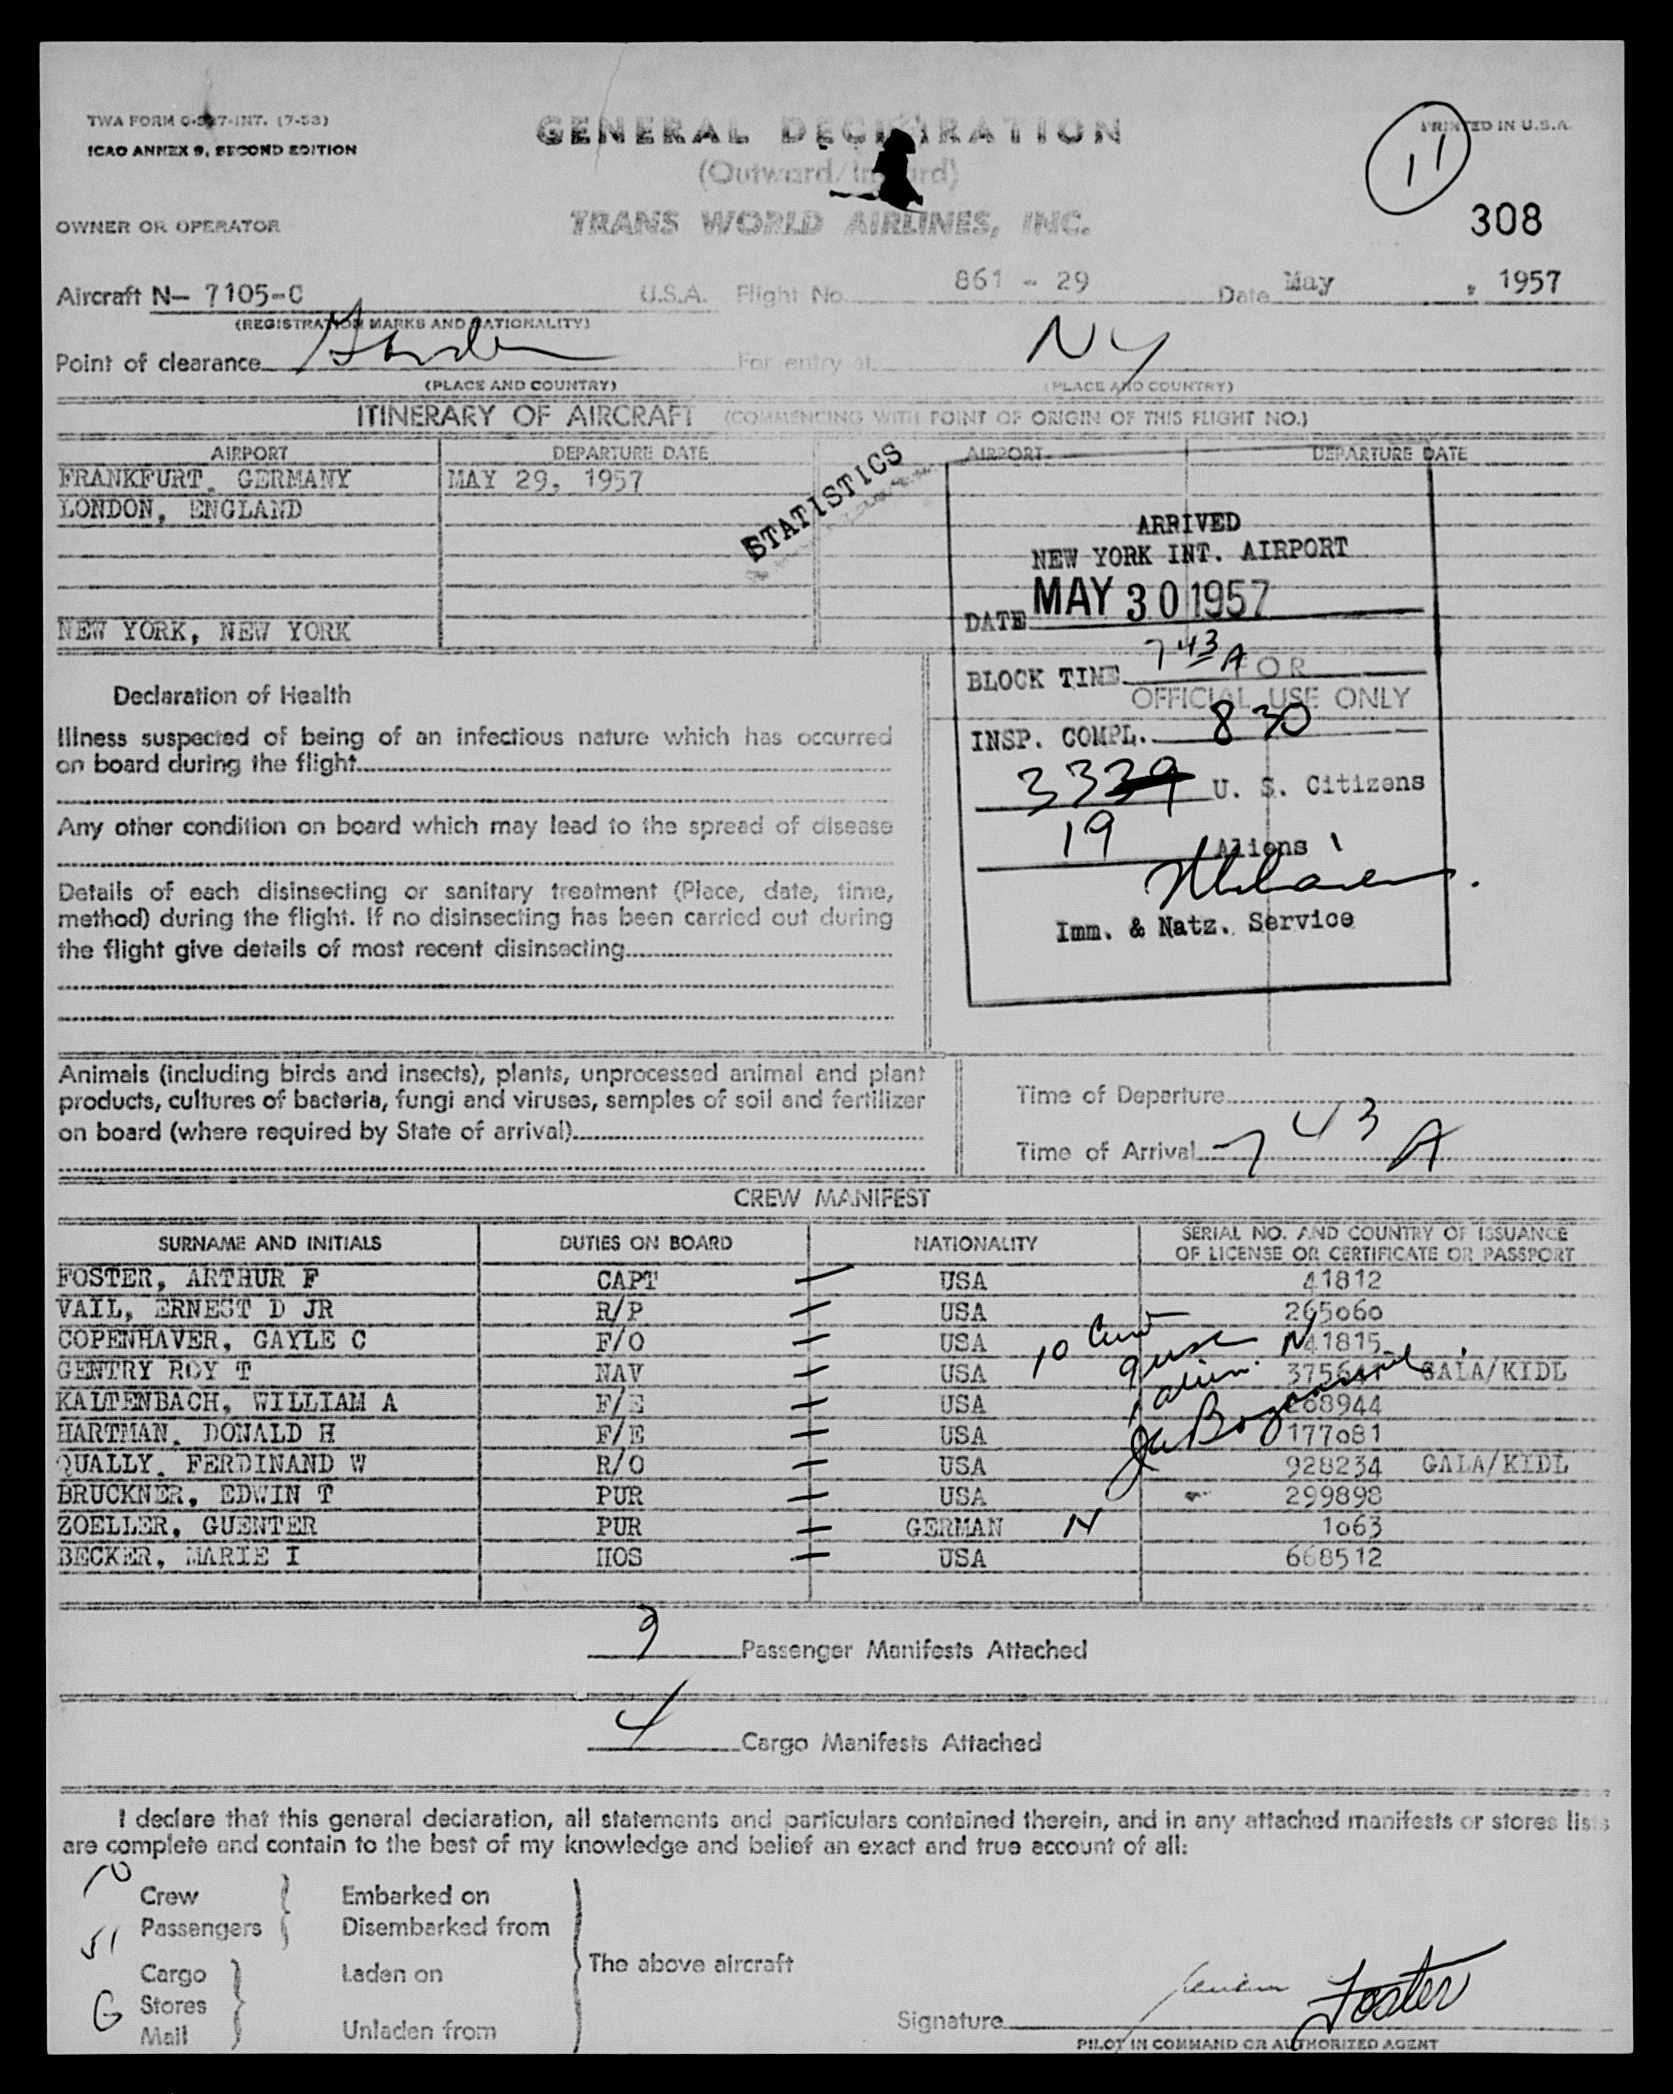 TWA FORM O-
ICAO ANNEX 9, SECOND EDITION
GENERAL DECLARATION
(Outward/Inward)
PRINTED IN U.S.A.
11
308
OWNER OR OPERATOR
TRANS WORLD AIRLINES, INC.
Aircraft N- 7105-C U.S.A. Flight No. 861 - 29 Date May , 1957
(REGISTRATION MARKS AND NATIONALITY)
Point of clearance For entry at NY
(PLACE AND COUNTRY) (PLACE AND COUNTRY)
ITINERARY OF AIRCRAFT (COMMENCING WITH POINT OF ORIGIN OF THIS FLIGHT NO.)
AIRPORT DEPARTURE DATE AIRPORT DEPARTURE DATE
FRANKFURT, GERMANY MAY 29, 1957
LONDON, ENGLAND
NEW YORK, NEW YORK
STATISTICS
ARRIVED
NEW YORK INT. AIRPORT
DATE MAY 30 1957
BLOCK TIME 743 A
FOR
OFFICIAL USE ONLY
INSP. COMPL. 830
33 U. S. Citizens
19 Aliens
Imm. & Natz. Service
Declaration of Health
Illness suspected of being of an infectious nature which has occurred
on board during the flight
Any other condition on board which may lead to the spread of disease
Details of each disinsecting or sanitary treatment (Place, date, time,
method) during the flight. If no disinsecting has been carried out during
the flight give details of most recent disinsecting
Animals (including birds and insects), plants, unprocessed animal and plant
products, cultures of bacteria, fungi and viruses, samples of soil and fertilizer
on board (where required by State of arrival)
Time of Departure
Time of Arrival 743 A
CREW MANIFEST
SURNAME AND INITIALS DUTIES ON BOARD NATIONALITY SERIAL NO. AND COUNTRY OF ISSUANCE
OF LICENSE OR CERTIFICATE OR PASSPORT
FOSTER, ARTHUR F CAPT USA 41812
VAIL, ERNEST D JR R/P USA 265060
COPENHAVER, GAYLE C F/O USA 41815
GENTRY ROY T NAV USA GALA/KIDL
KALTENBACH, WILLIAM A F/E USA 268944
HARTMAN, DONALD H F/E USA 177081
QUALLY, FERDINAND W R/O USA 928234 GALA/KIDL
BRUCKNER, EDWIN T PUR USA 299898
ZOELLER, GUENTER PUR GERMAN N 1063
BECKER, MARIE I HOS USA 668512
10 Crew
9 usc N
1 alien
9 Passenger Manifests Attached
4 Cargo Manifests Attached
I declare that this general declaration, all statements and particulars contained therein, and in any attached manifests or stores lists
are complete and contain to the best of my knowledge and belief an exact and true account of all:
10 Crew Embarked on
51 Passengers Disembarked from
The above aircraft
Cargo Laden on
G Stores
Mail Unladen from
Signature Foster
PILOT IN COMMAND OR AUTHORIZED AGENT